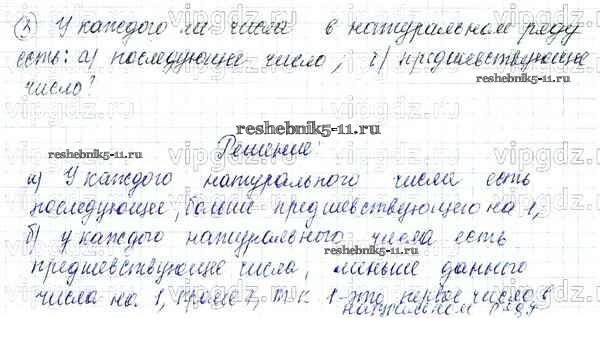 У каждого ли числа в натуральном ряду
есть: а) последующее число, б) предшествующее
число?
reshebnik5-11.ru
Решение
а) У каждого натурального числа есть
последующее, больше предшествующего на 1,
б) у каждого натурального числа есть
предшевствующее число, меньше данного
числа на 1, кроме 1, т.к 1-это первое число в
натуральном ряду